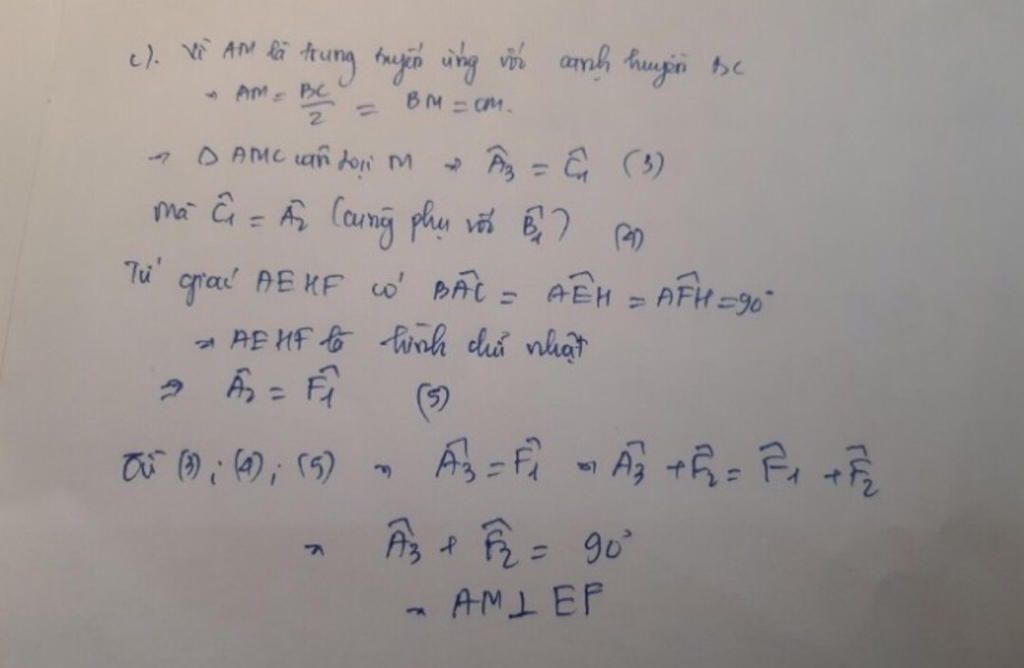 c). Vì AM là trung tuyến ứng với cạnh huyền BC
→ AM = BC/2 = BM = CM.
→ Δ AMC cân tại M → Â₃ = Ĉ₁ (3)
Mà Ĉ₁ = Â₂ (cùng phụ với B̂₁) (4)
Tứ giác AEHF có BÂC = AÊH = AF̂H = 90°
→ AEHF là hình chữ nhật
⇒ Â₂ = F̂₁ (5)
Từ (3); (4); (5) → Â₃ = F̂₁ → Â₃ + F̂₂ = F̂₁ + F̂₂
→ Â₃ + F̂₂ = 90°
→ AM ⊥ EF